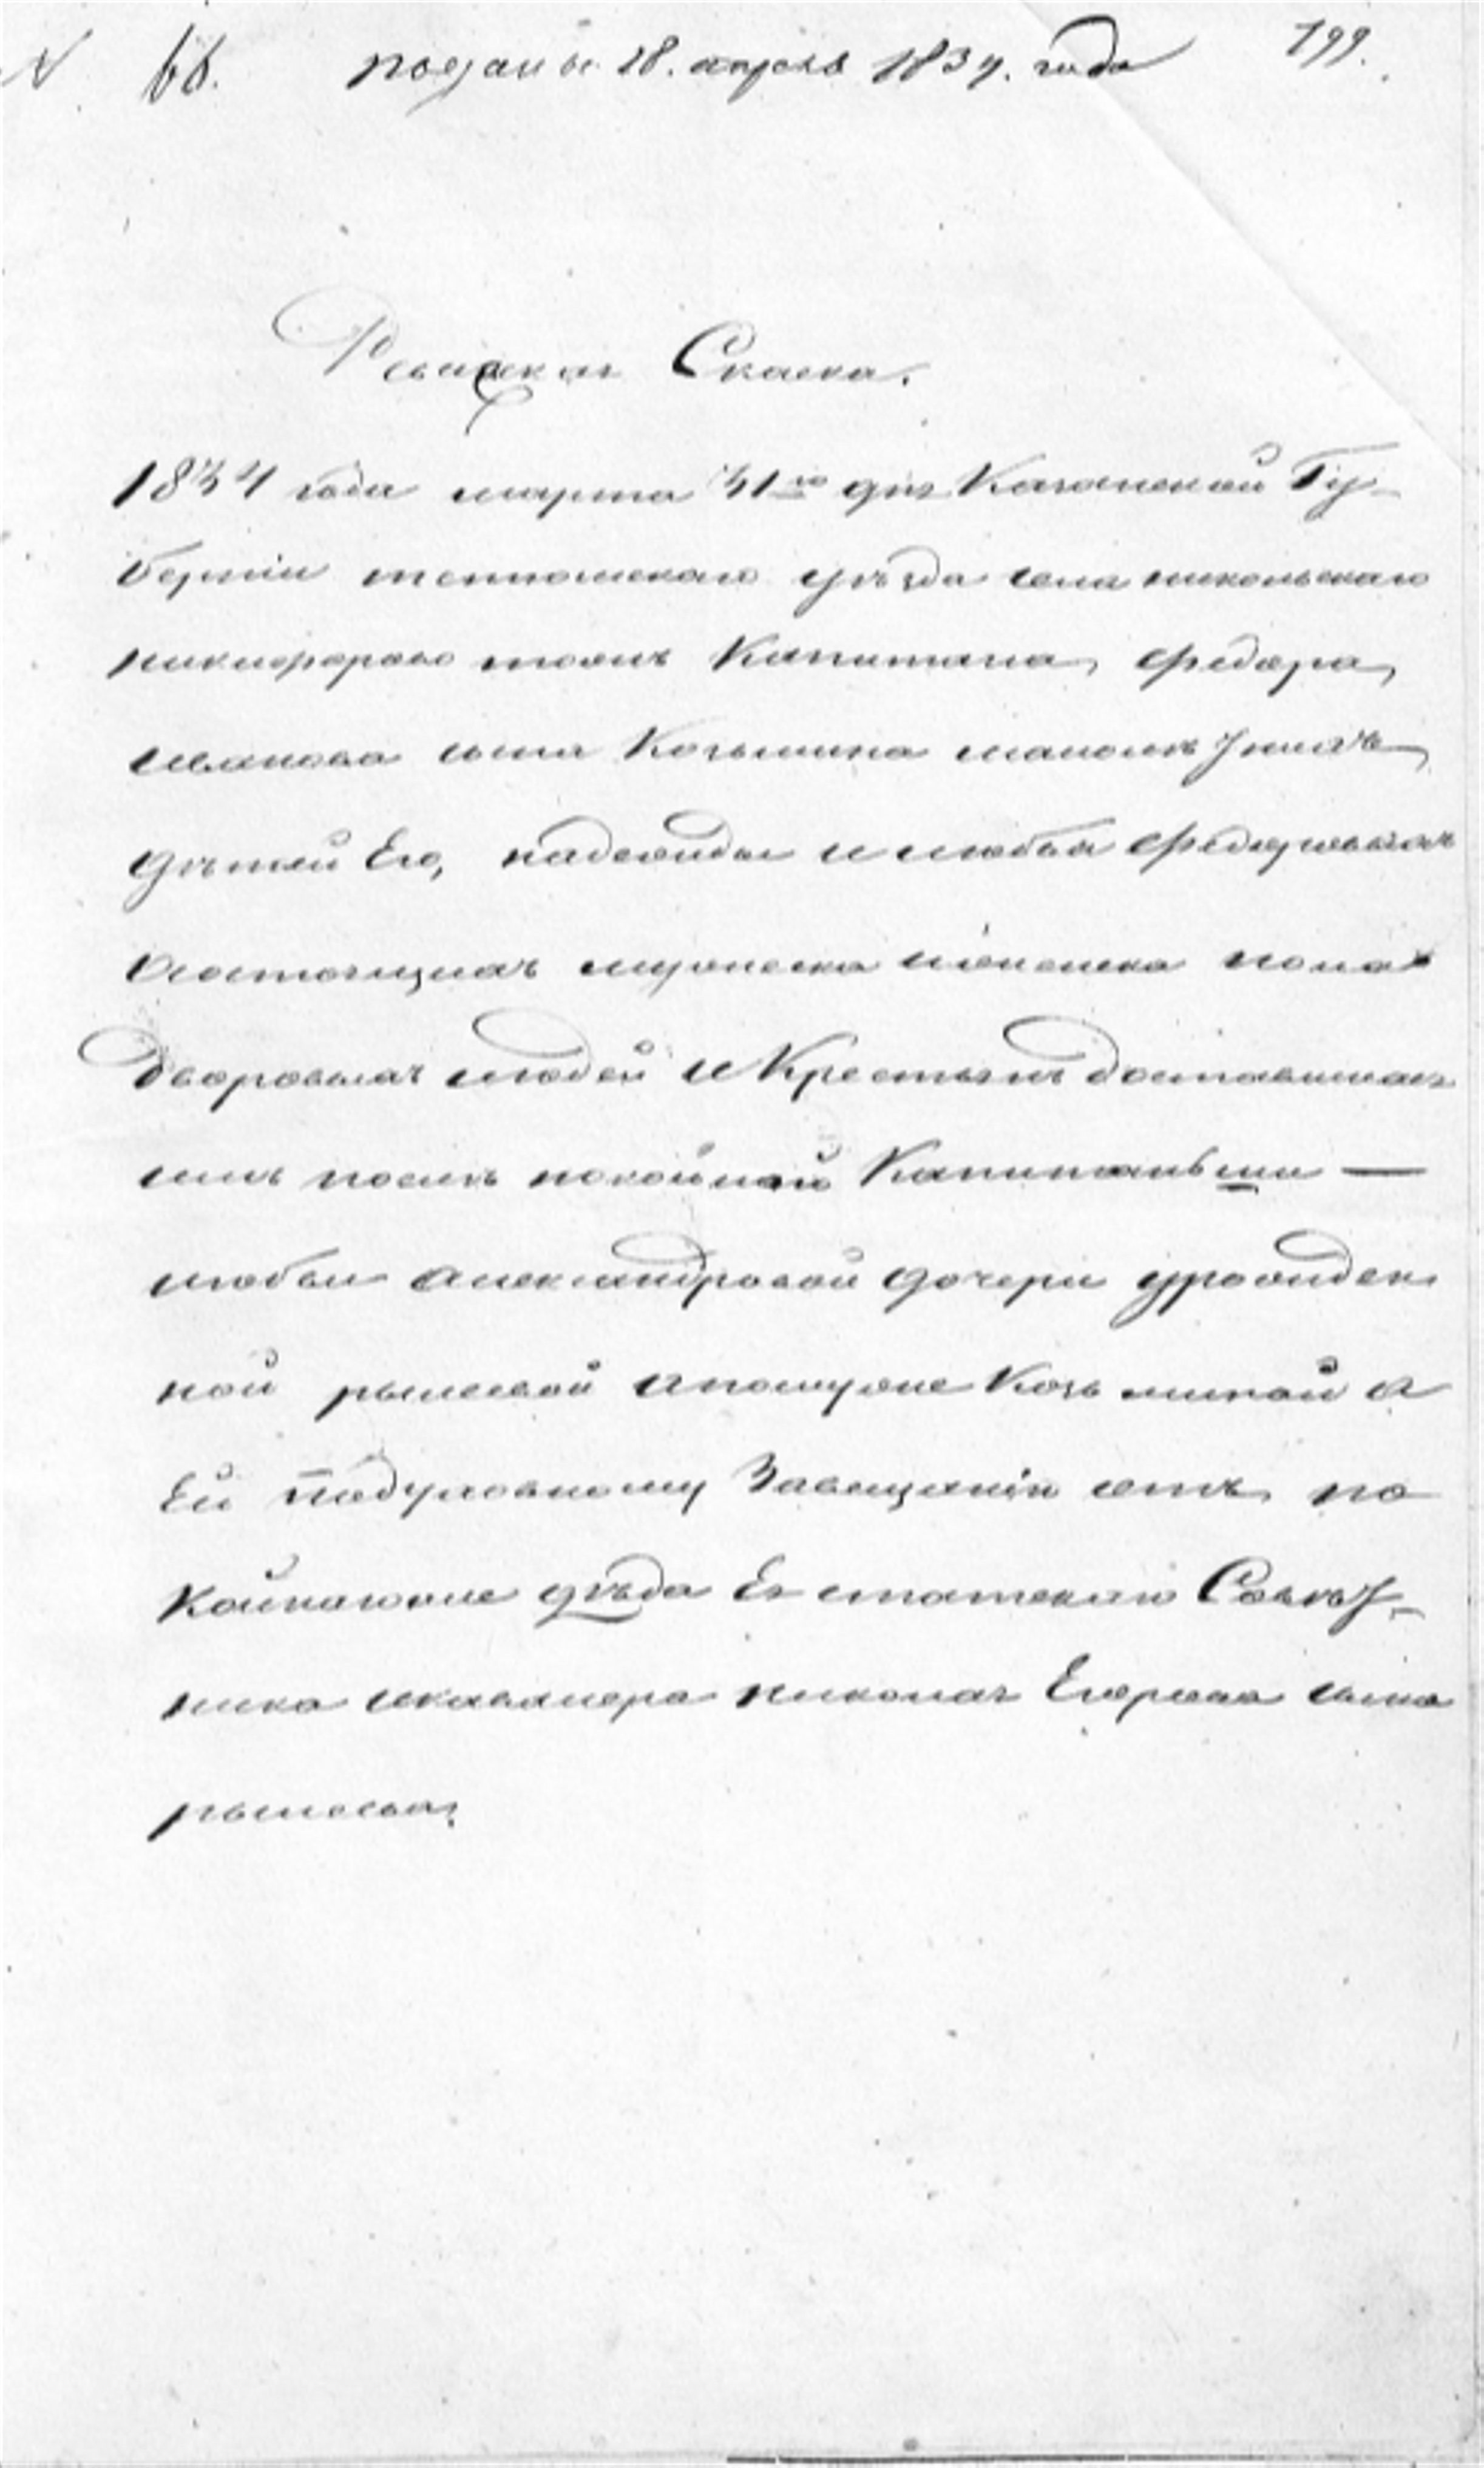 N 66. поданы 28. апреля 1834. года 799.
Ревизская Скаска.
1834 года марта 31го дня Казанской Гу-
берніи тетюшскаго уѣзда села никольскаго
никифорово тожъ Капитана федора
иванова сына Козьмина малолѣтнихъ
дѣтей Его, надежды и любви федоровыхъ
о состоящихъ мужеска и женска пола
Дворовыхъ людей и Крестьянъ доставшихся
имъ послѣ покойной Капитаньши —
любви александровой дочери урожден
ной рылеевой а по мужѣ Козьминой а
Ей по духовному Завещанію отъ по
койнаго же дѣда Ея статскаго Совѣт-
ника и кавалера николая Егорова сына
рылеева.